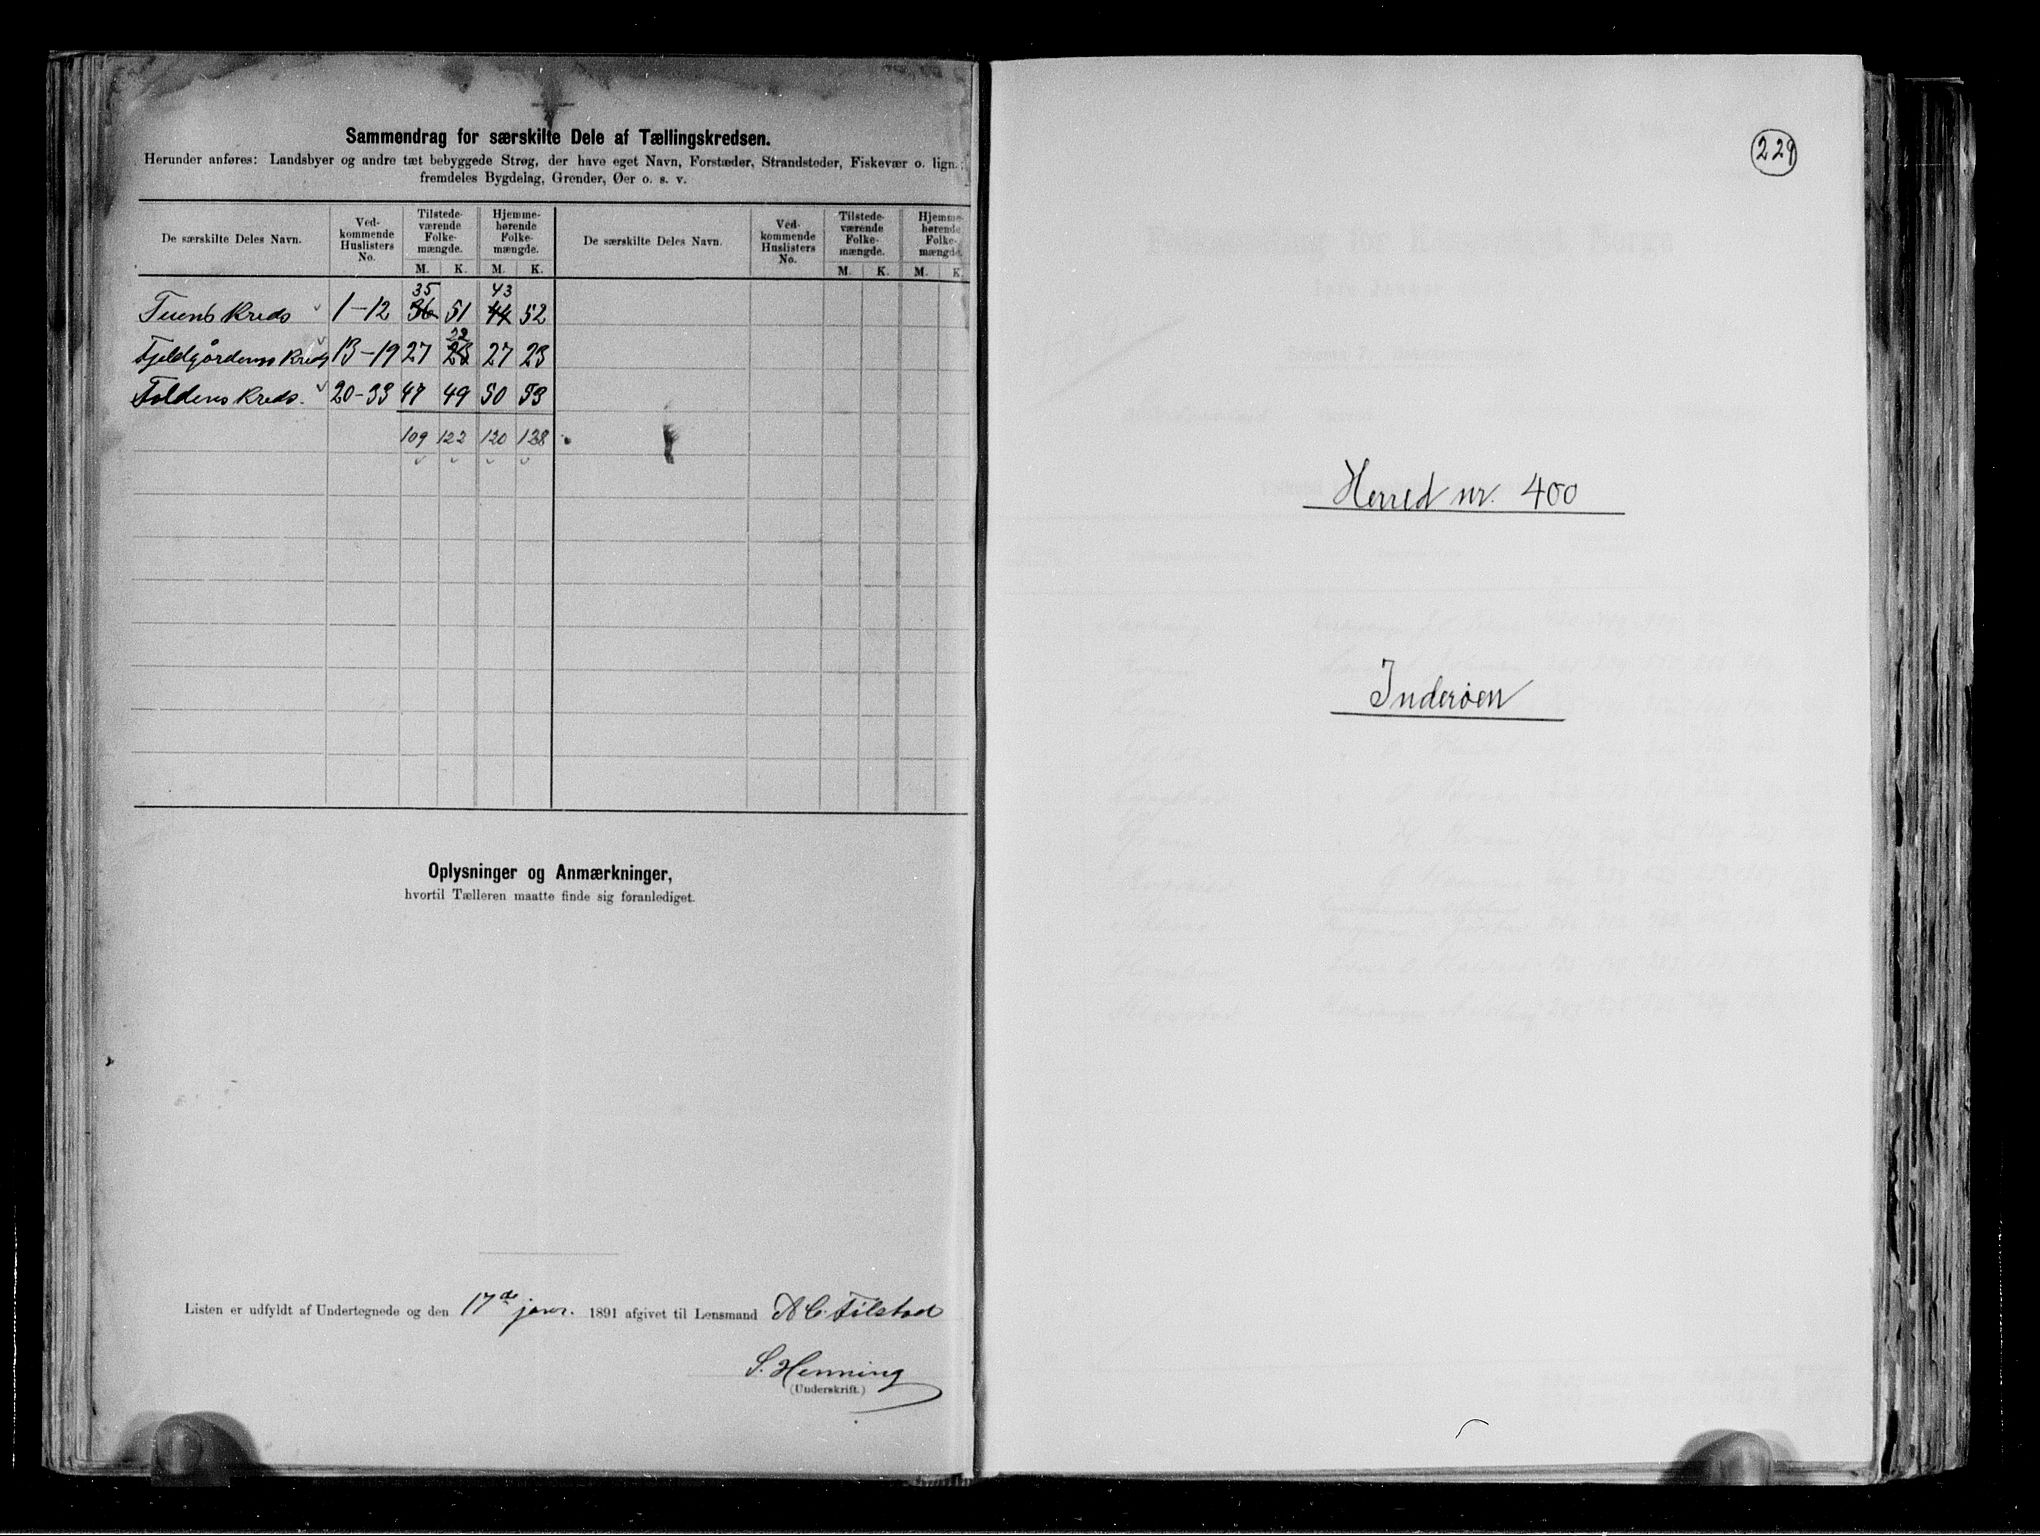 Sammendrag for særskilte Dele af Tællingskredsen.
Herunder anføres: Landsbyer og andre tæt bebyggede Strøg, der have eget Navn, Forstæder, Strandsteder, Fiskevær o. lign.;
fremdeles Bygdelag, Grender, Øer o. s. v.
De særskilte Deles Navn. Ved-kommende Huslisters No. Tilstede-værende Folke-mængde. Hjemme-hørende Folke-mængde. De særskilte Deles Navn. Ved-kommende Huslisters No. Tilstede-værende Folke-mængde. Hjemme-hørende Folke-mængde.
M. K. M. K. M. K. M. K.
35 43
Tuens Kreds 1-12 36 51 44 52
22
Fjeldgårdenes Kreds 13-19 27 23 27 23
Foldens Kreds. 20-33 47 49 50 53
109 122 120 128
Oplysninger og Anmærkninger,
hvortil Tælleren maatte finde sig foranlediget.
Listen er udfyldt af Undertegnede og den 17de janr. 1891 afgivet til Lensmand A C Filstad
S. Henning
(Underskrift.)
229
Herred nr. 400
Inderøen